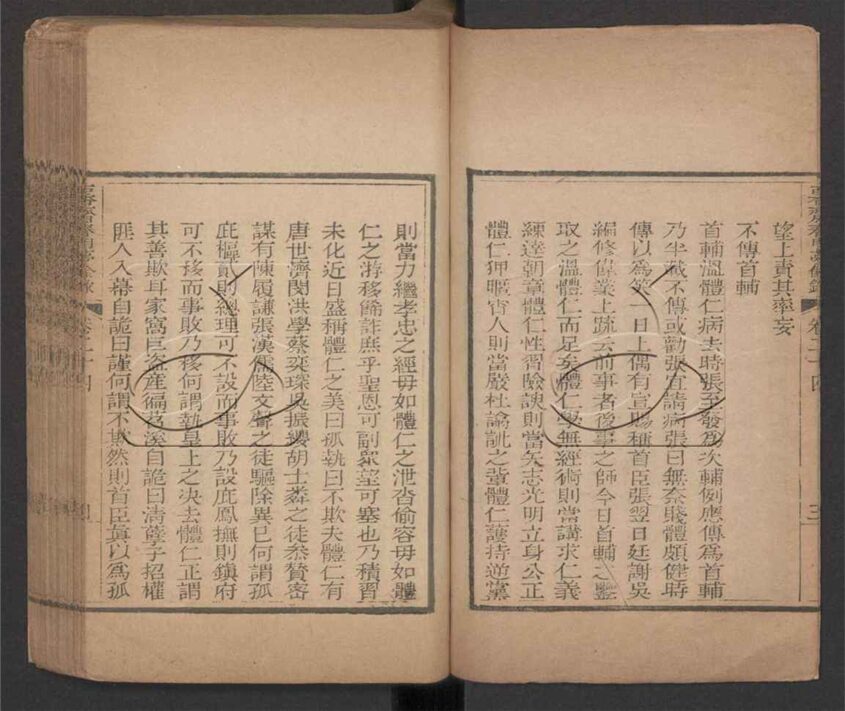 望上責其率妄
不傳首輔
首輔溫體仁病去時張至發為次輔例應傳為首輔
乃坐藏不傳或勸張宜請病張曰無奈賤體頗健時
傳以為笑一日上偶有宣賜稱首臣張翌日廷謝吳
編修偉業上疏云前事者後事之師今日首輔之鑒
取之溫體仁而足矣體仁學無經術則當講求仁義
練達朝章體仁性習險諛則當矢志光明立身公正
體仁狎暱宵人則當嚴杜訿之輩體仁護持逆黨
卷二十四
三
則當力繼孝忠之經毋如體仁之泄沓偷容毋如體
仁之游移飾詐庶乎聖恩可副眾望可塞也乃積習
未化近日盛稱體仁之美曰孤執曰不欺夫體仁有
唐世濟閔洪學蔡奕琛吳振纓胡士之徒叅贊密
謀有陳履謙張漢儒陸文聲之徒驅除異已何謂孤
庇樞貳則總理可不設而事敗乃設庇鳳撫則鎮府
可不移而事敗乃移何謂執皇上之決去體仁正謂
其善欺耳家窩巨盜產徧苕溪自詭曰清孽子招權
匪人入幕自詭曰謹何謂不欺然則首臣眞以為孤
卷二十四